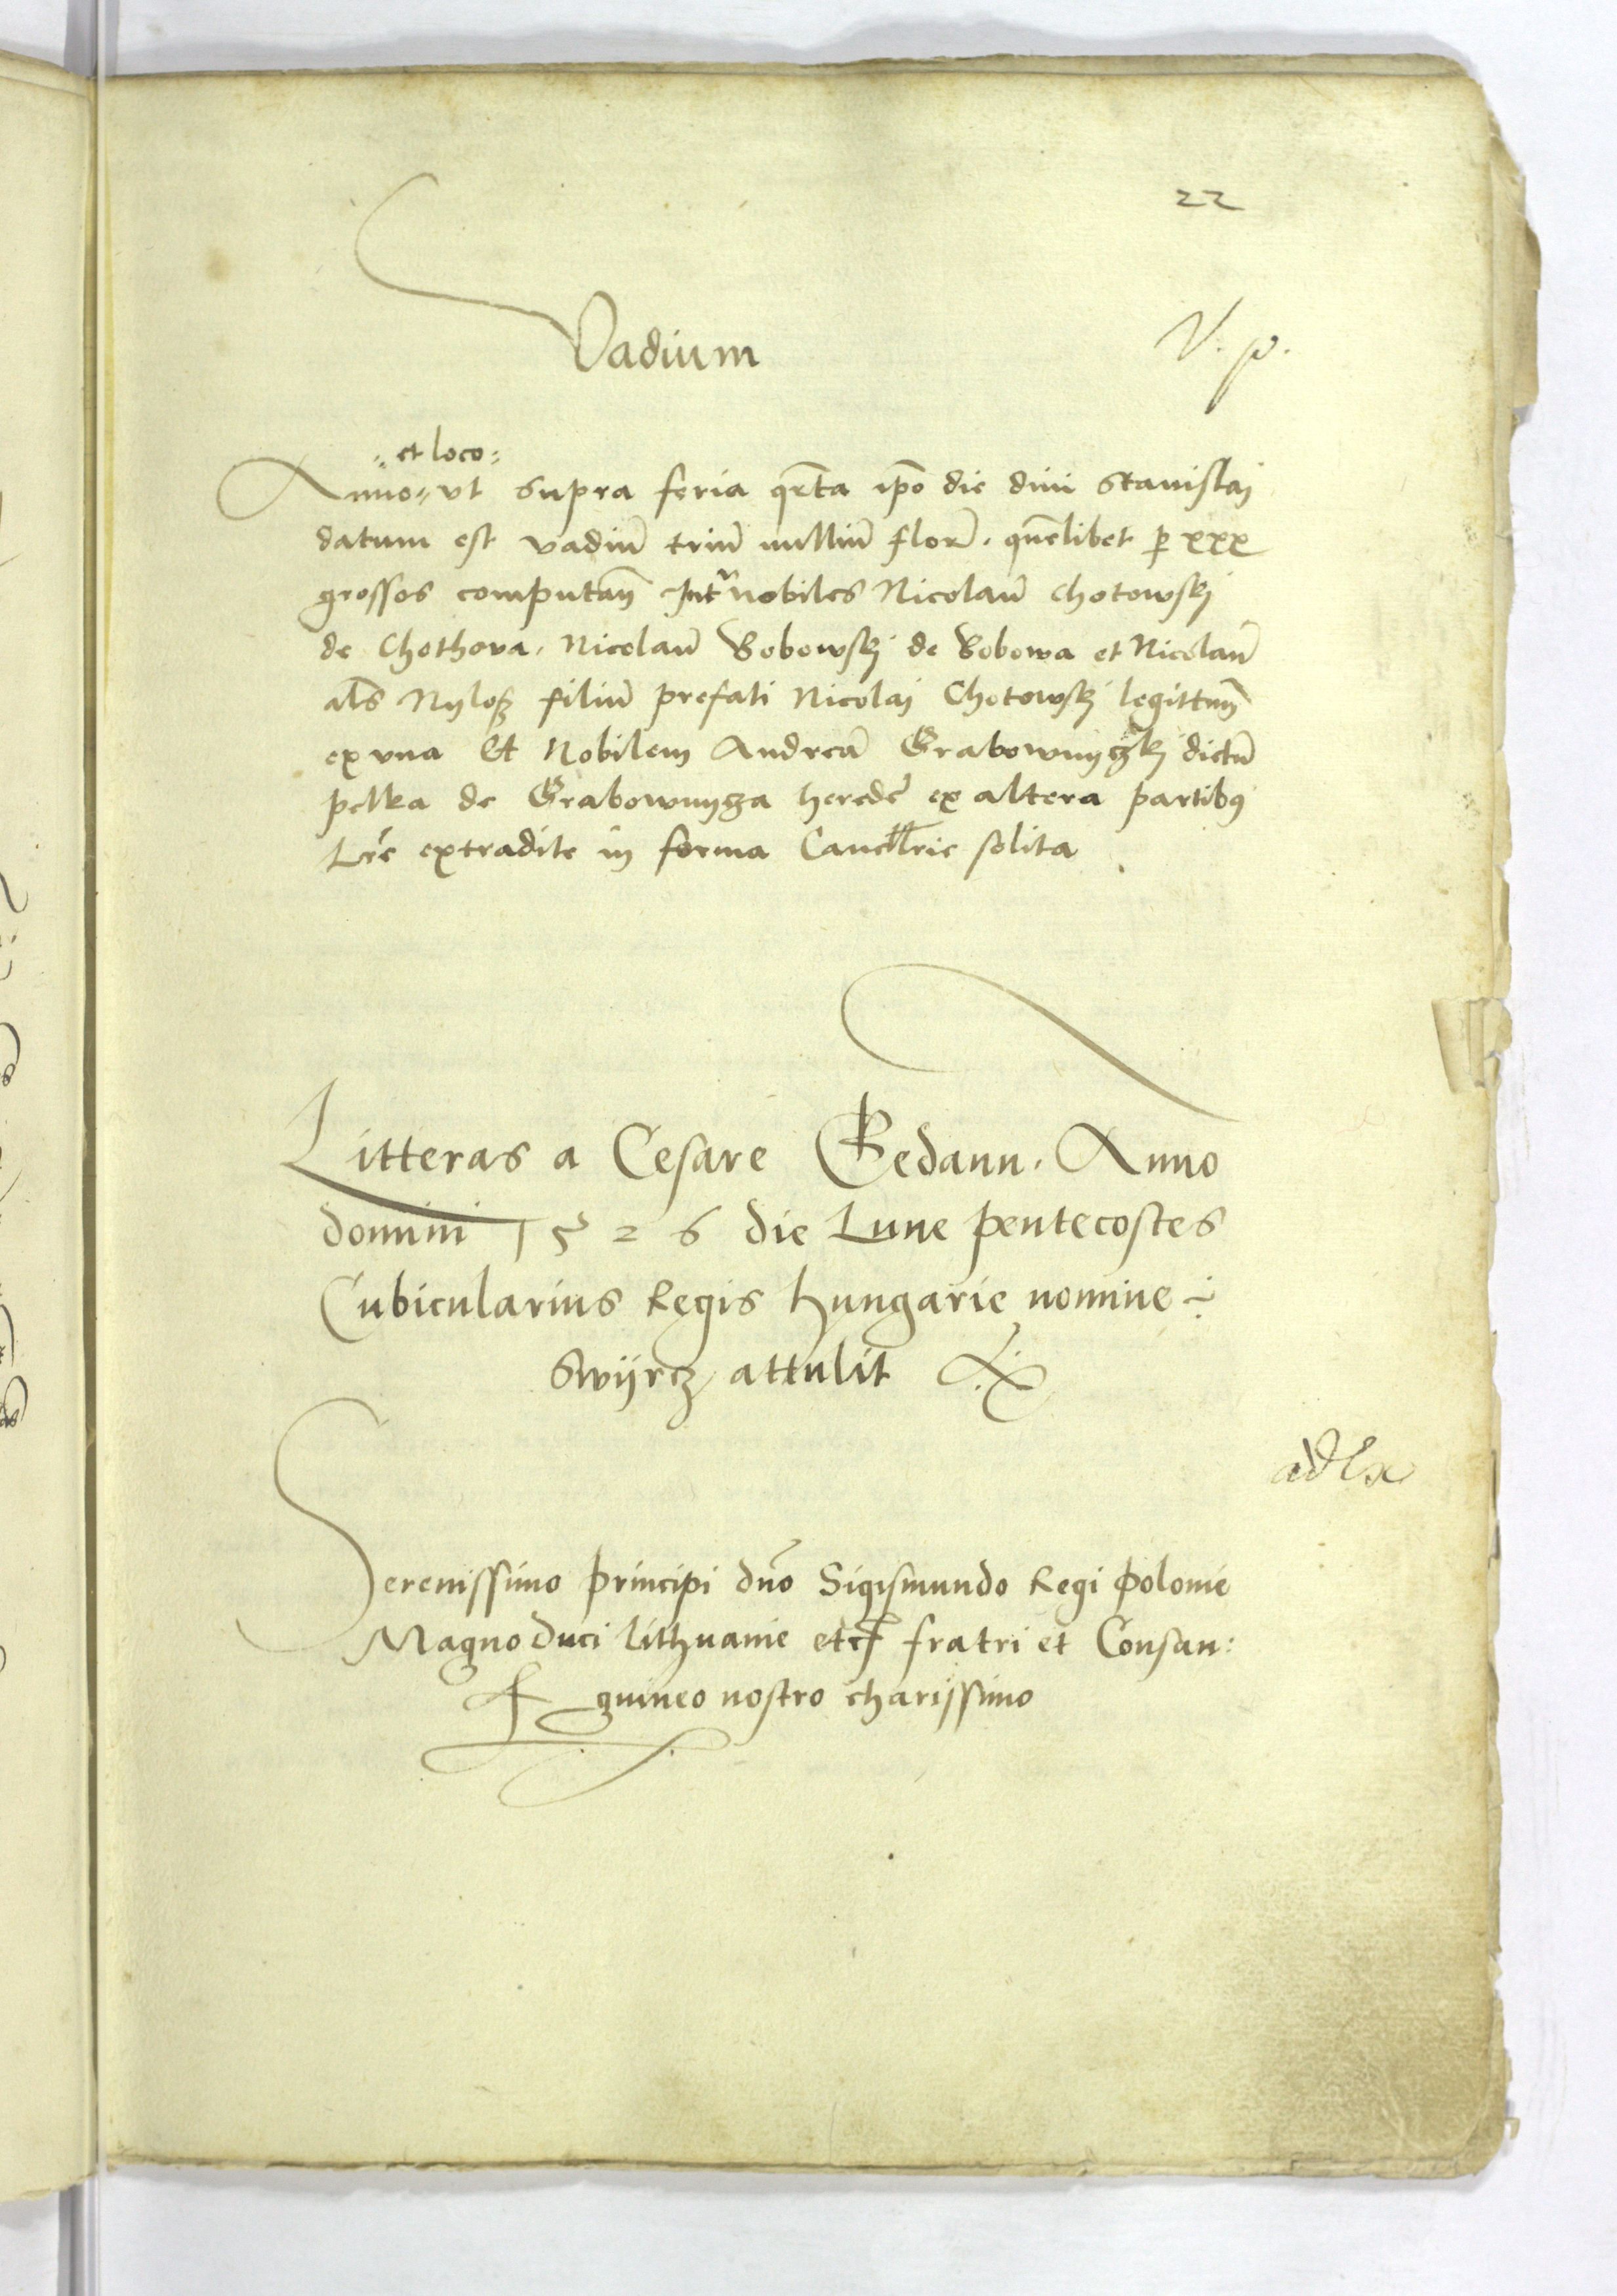 22
Vadium
V. p.
„ et loco „
Anno „ vt supra feria qrta ipo die diui Stanislaj
datum est vadiū triū milliū florē. quēlibet p xxx
grossos computañ Intr nobiles Nicolaū Chotowskj
de Chothova. Nicolaū Bobowskj de Bobowa et Nicolaū
als Nyloß filiū prefati Nicolaj Chotowskj legittimū
ex vna Et Nobilem Andreā Grabownyczkj dictū
pelka de Grabownycza heredē ex altera partibꝯ
Lrē extradite in forma Cancllrie solita
Litteras a Cesare Redann. Anno
domini 1526 die Lune pentecostes
Cubicularius Regis hungarie nomine
Swyrcz attulit
Serenissimo principi dño Sigismundo Regi Polonie
Magno duci Lithuanie etc fratri et Consan:
guineo nostro charissimo